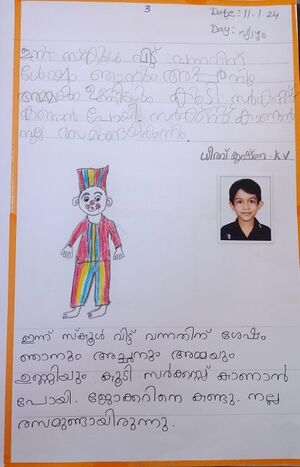 3
Date: 11-1-24
Day: വ്യാഴം
ഇന്ന് സ്കൂൾ വിട്ട് വന്നതിന്
ശേഷം ഞാനും അച്ഛനും
അമ്മയും ഉണ്ണിയും കൂടി സർക്കസ്സ്
കാണാൻ പോയി. സർക്കസ്സ് കാണാൻ
നല്ല രസമുണ്ടായിരുന്നു.
കൃഷ്ണ - K.V
ഇന്ന് സ്കൂൾ വിട്ട് വന്നതിന് ശേഷം
ഞാനും അച്ഛനും അമ്മയും
ഉണ്ണിയും കൂടി സർക്കസ്സ് കാണാൻ
പോയി. ജോക്കറിനെ കണ്ടു. നല്ല
രസമുണ്ടായിരുന്നു.